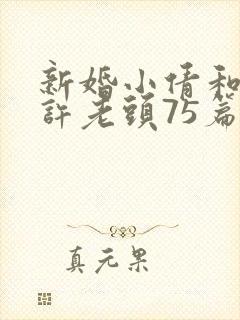 新婚小倩和
許老頭75篇
真元果